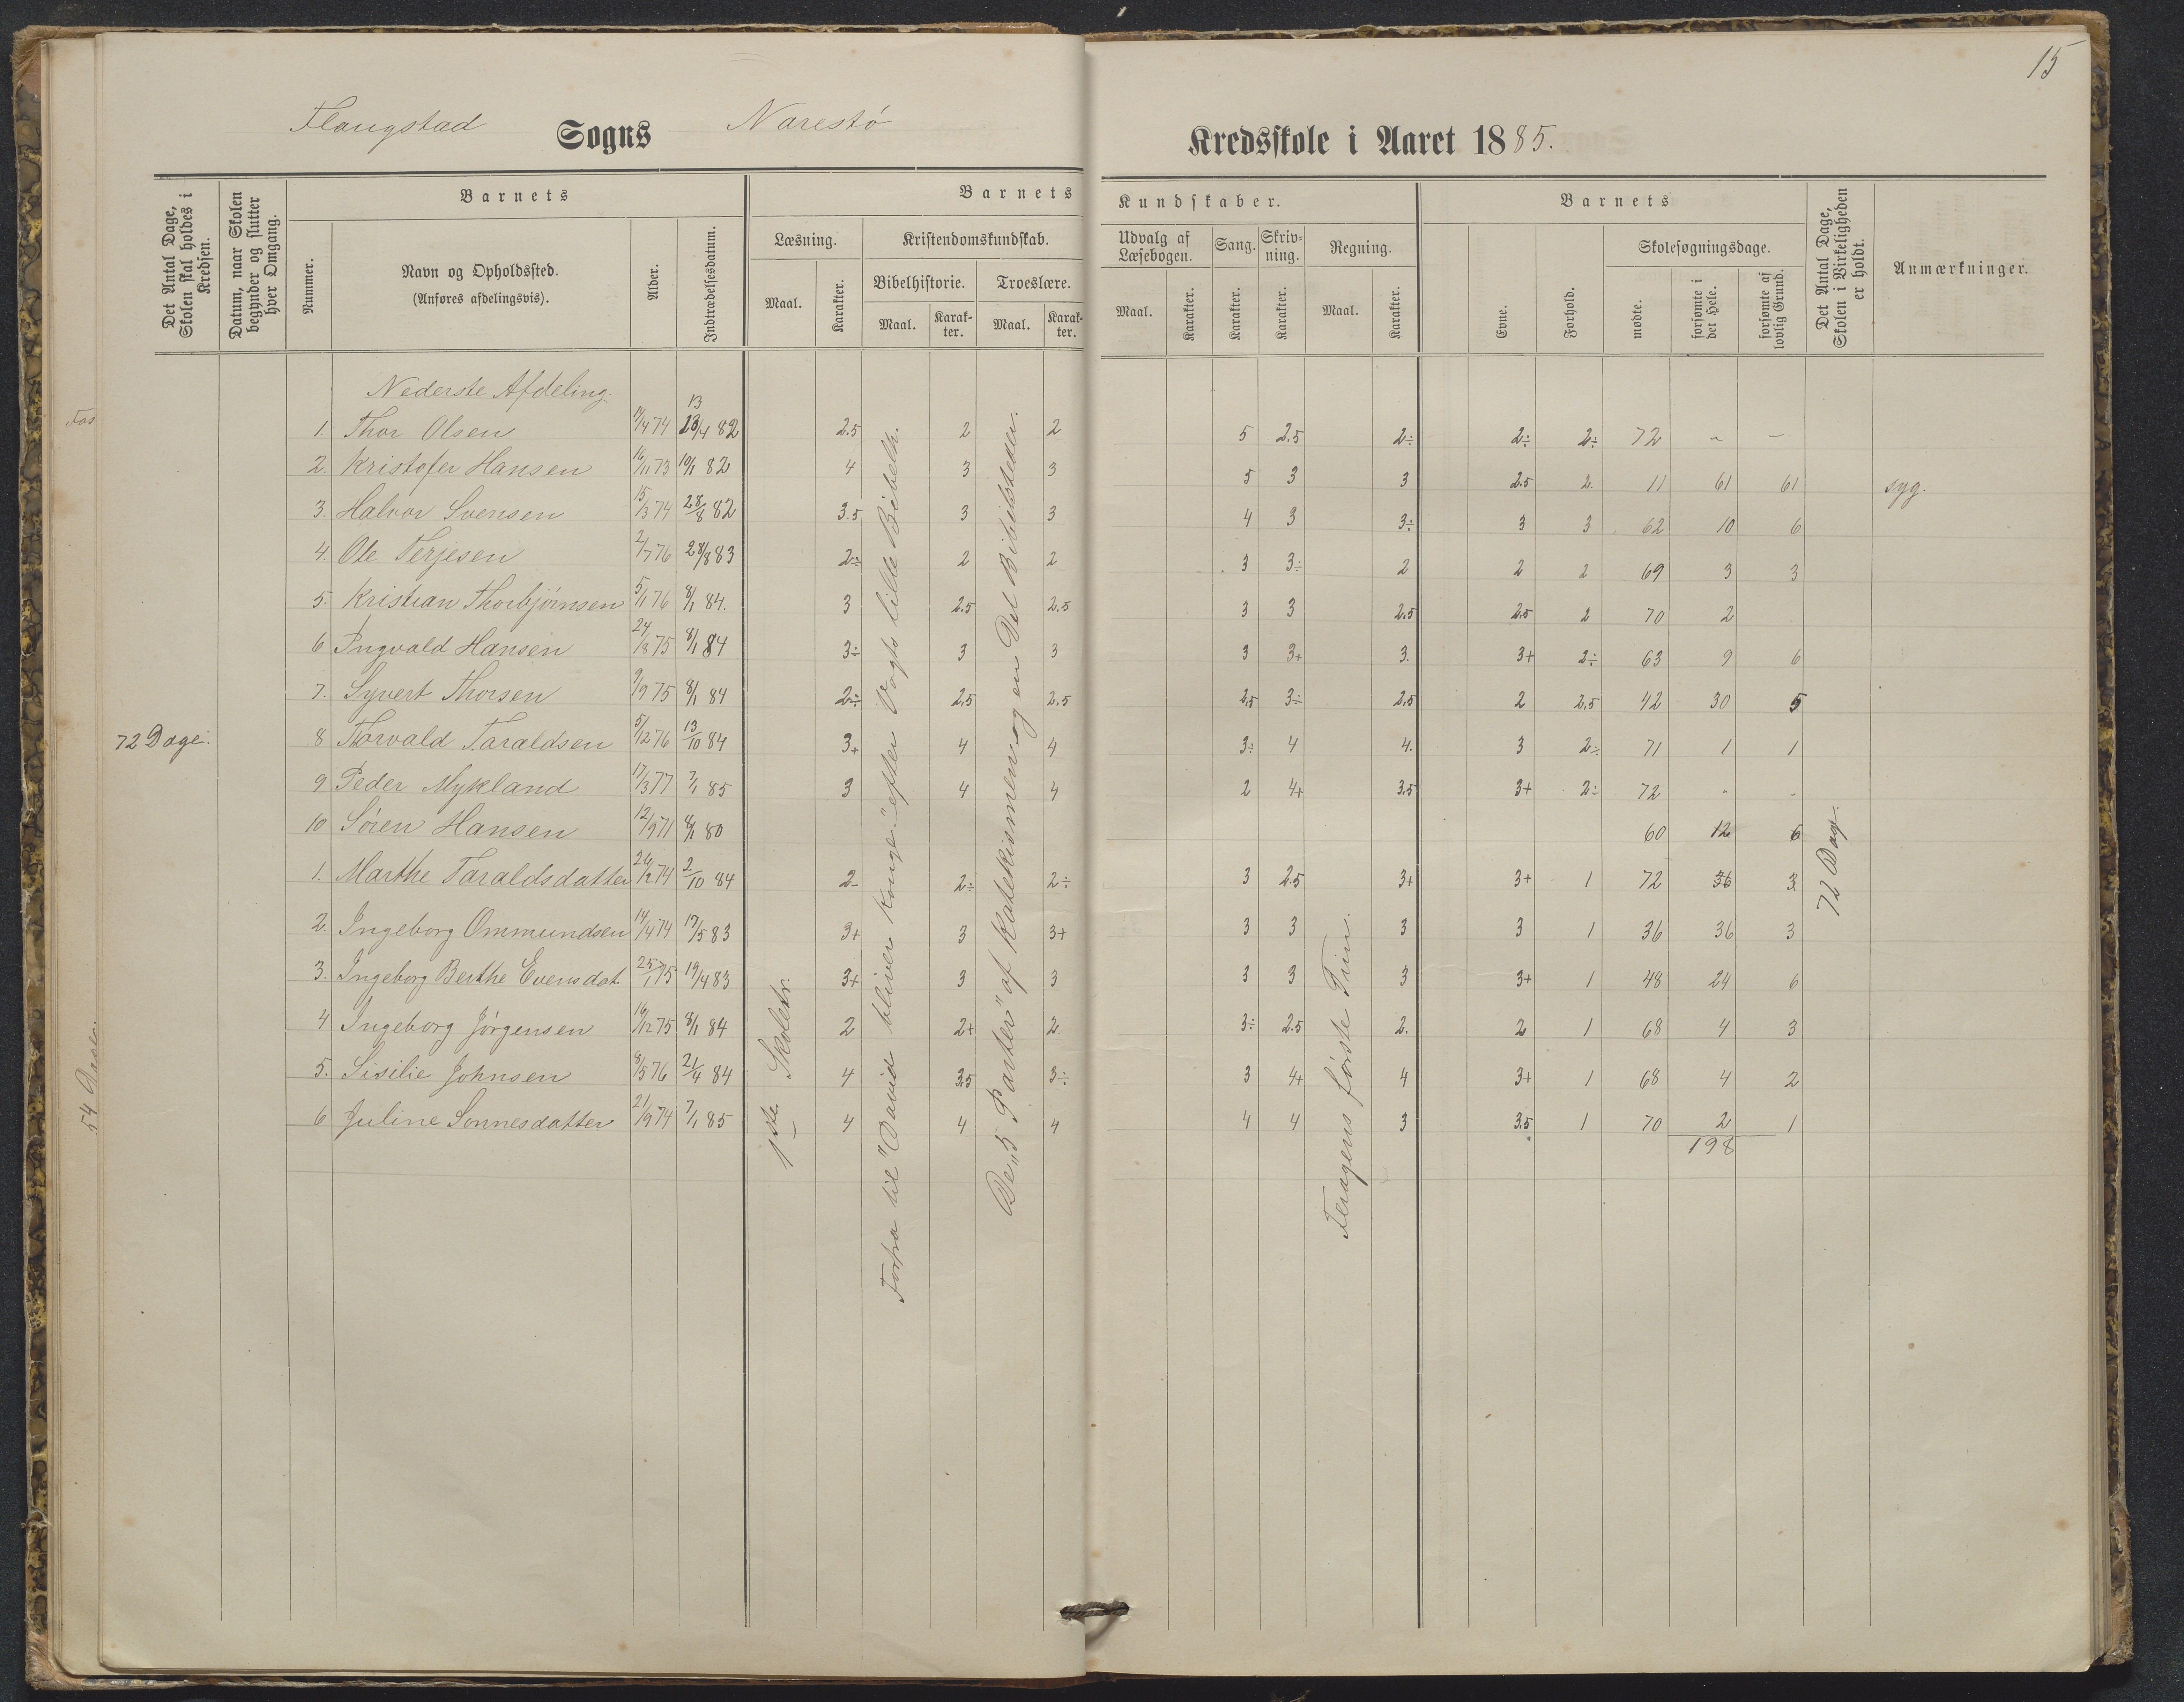 15
Flangstad Sogns Narestö Kredsskole i Aaret 1885.
Det Antal Dage, Skolen skal holdes i Kredsen.
Datum, naar Skolen begynder og slutter hver Omgang.
Barnets
Nummer.
Navn og Opholdssted.
(Anføres afdelingsvis).
Alder.
Indtrædelsesdatum.
Barnets Kundskaber.
Læsning.
Maal.
Karakter.
Kristendomskundskab.
Bibelhistorie.
Maal.
Karakter.
Troeslære.
Maal.
Karakter.
Udvalg af Læsebogen.
Maal.
Karakter.
Sang.
Karakter.
Skrivning.
Karakter.
Regning.
Maal.
Karakter.
Barnets
Evne.
Forhold.
Skolesøgningsdage.
mødte.
forsømte i det Hele.
forsømte af lovlig Grund.
Det Antal Dage, Skolen i Virkeligheden er holdt.
Anmærkninger.
Nederste Afdeling.
13
1. Thor Olsen 17/4 74 23/4 82 2.5 2 2 5 2.5 2÷ 2÷ 2÷ 72 " –
2. Kristofer Hansen 16/11 73 10/1 82 4 3 3 5 3 3 2.5 2. 11 61 61 syg.
3. Halvor Svensen 15/3 74 28/8 82 3.5 3 3 4 3 3÷ 3 3 62 10 6
4. Ole Terjesen 2/7 76 28/8 83 2÷ 2 2 3 3÷ 2 2 2 69 3 3
5. Kristian Thorbjörnsen 5/1 76 8/1 84. 3 2.5 2.5 3 3 2.5 2.5 2 70 2
6 Ingvald Hansen 24/8 75 8/1 84 3÷ 3 3 3 3+ 3. 3+ 2÷ 63 9 6
7. Syvert Thorsen 9/9 75 8/1 84 2÷ 2.5 2.5 2.5 3÷ 2.5 2 2.5 42 30 5
72 Dage.
8 Thorvald Taraldsen 5/12 76 13/10 84 3+ 4 4 3÷ 4 4. 3 2÷ 71 1 1
9 Peder Mykland 17/3 77 7/1 85 3 4 4 2 4+ 3.5 3+ 2÷ 72 " -
10 Sören Hansen 12/9 71 8/1 80 60 12 6
1. Marthe Taraldsdatter 26/12 74 2/10 84 2- 2÷ 2÷ 3 2.5 3+ 3+ 1 72 36 3
2. Ingeborg Ommundsen 14/4 74 17/5 83 3+ 3 3+ 3 3 3 3 1 36 36 3
3. Ingeborg Berthe Evensdat. 25/1 75 19/4 83 3+ 3 3 3 3 3 3+ 1 48 24 6
4 Ingeborg Jörgensen 16/12 75 8/1 84 2 2+ 2. 3÷ 2.5 2. 2 1 68 4 3
5. Sisilie Johnsen 8/5 76 21/4 84 4 3.5 3÷ 3 4+ 4 3+ 1 68 4 2
6 Juline Sonnesdatter 21/9 74 7/1 85 4 4 4 4 4 3 3.5 1 70 2 1
198
1ste Skoletr.
Forfra til "David bliver Konge" efter Vogts lille Bibelh.
De "5 Parter" af Katekismen og en Del Bibelsteder.
Feragens første Trin.
72 Dage.
54 Dage.